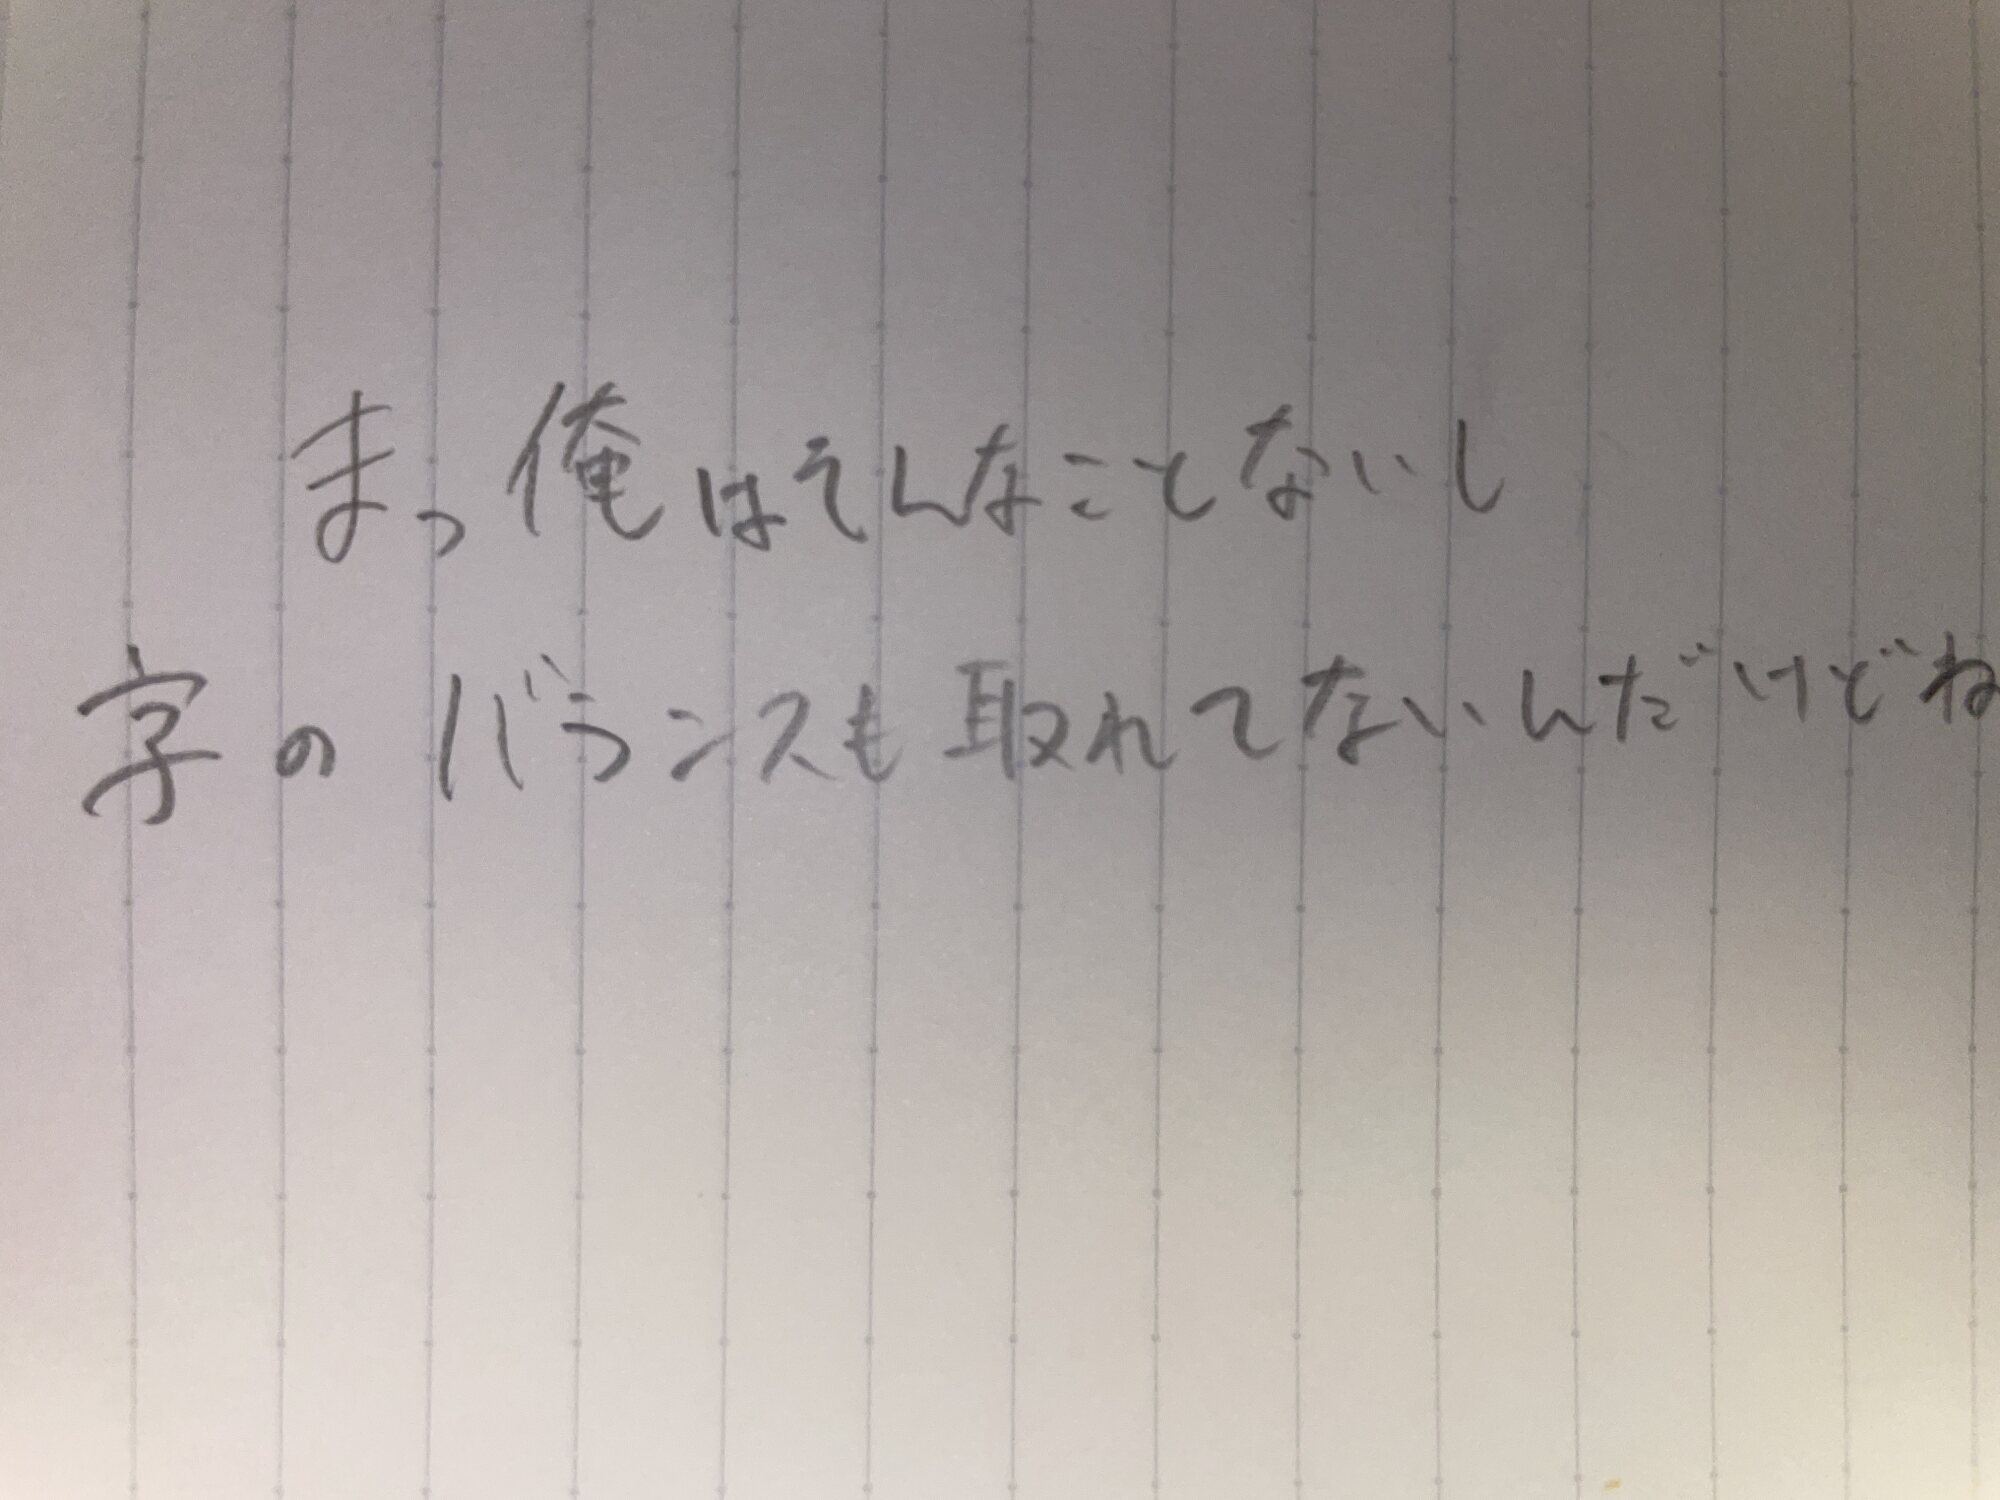 まっ俺はそんなことないし
字のバランスも取れてないんだけどね